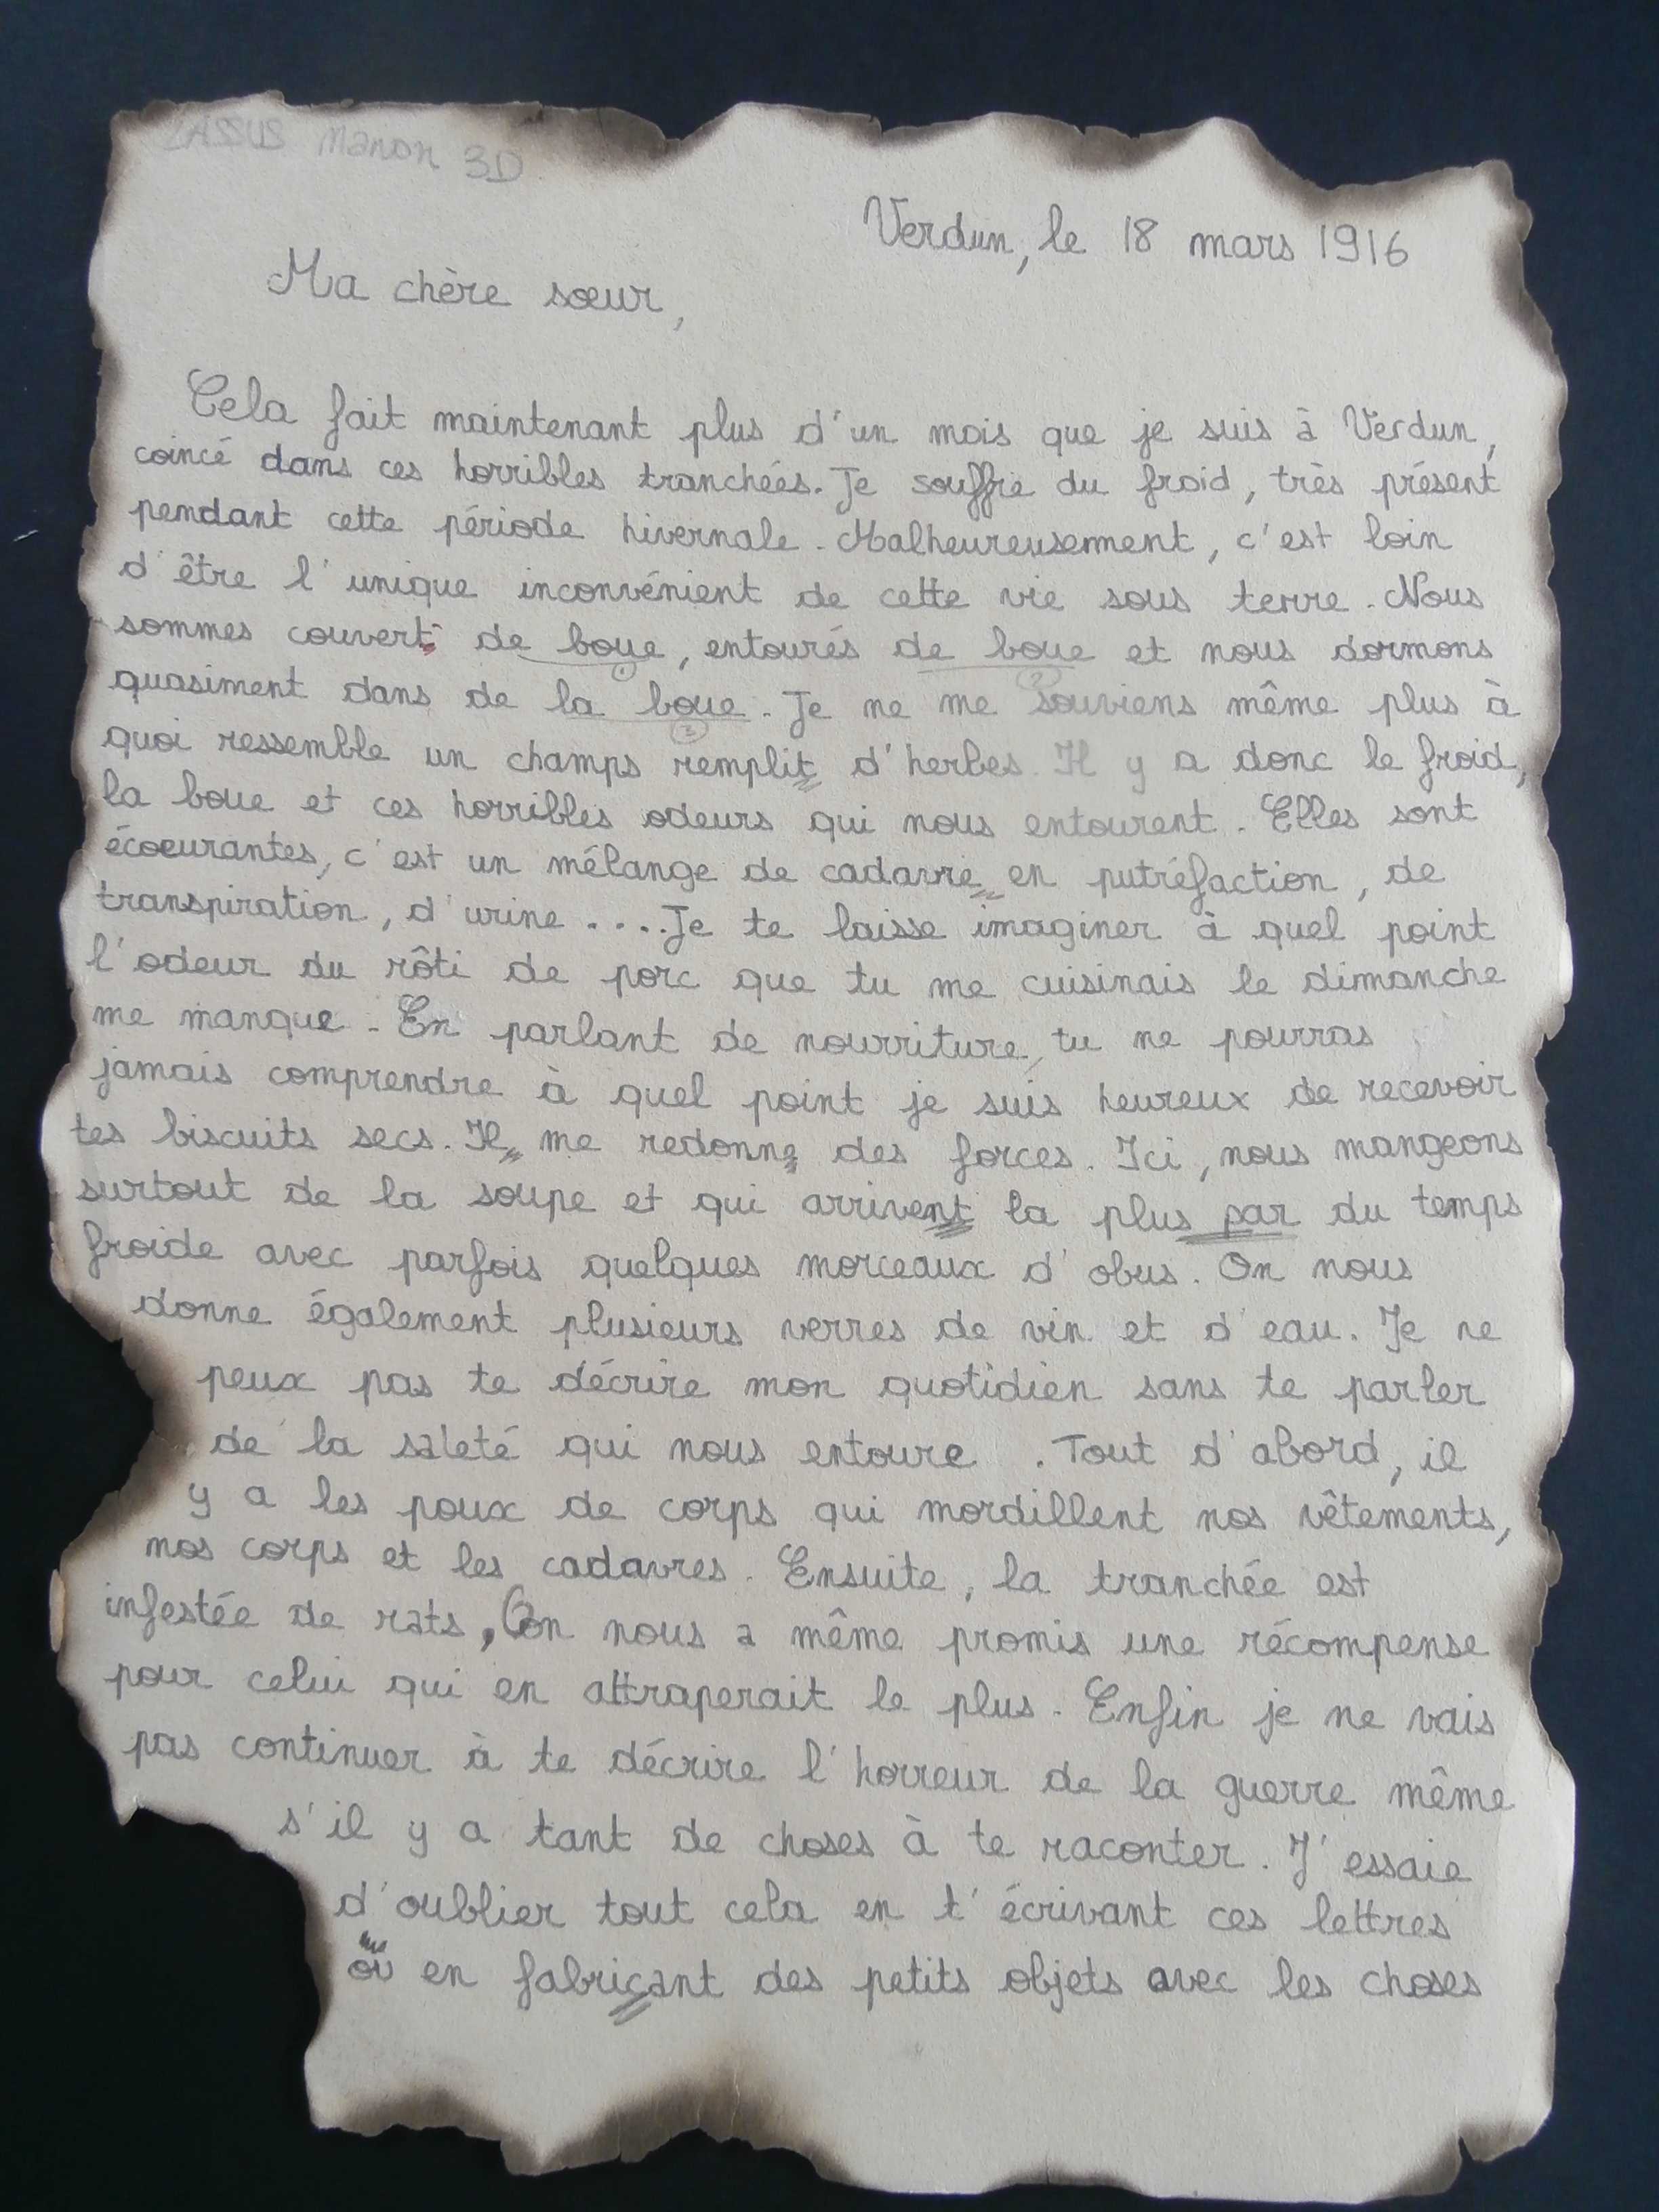 LASSUS Manon 3D
Verdun, le 18 mars 1916
Ma chère sœur,
Cela fait maintenant plus d'un mois que je suis à Verdun,
coincé dans ces horribles tranchées. Je souffre du froid, très présent
pendant cette période hivernale. Malheureusement, c'est loin
d'être l'unique inconvénient de cette vie sous terre. Nous
sommes couvert de boue, entourés de boue et nous dormons
quasiment dans de la boue. Je ne me souviens même plus à
quoi ressemble un champs remplit d'herbes. Il y a donc le froid,
la boue et ces horribles odeurs qui nous entourent. Elles sont
écoeurantes, c'est un mélange de cadavre en putréfaction, de
transpiration, d'urine .... Je te laisse imaginer à quel point
l'odeur du rôti de porc que tu me cuisinais le dimanche
me manque. En parlant de nourriture, tu ne pourras
jamais comprendre à quel point je suis heureux de recevoir
tes biscuits secs. Il me redonne des forces. Ici, nous mangeons
surtout de la soupe et qui arrivent la plus par du temps
froide avec parfois quelques morceaux d'obus. On nous
donne également plusieurs verres de vin et d'eau. Je ne
peux pas te décrire mon quotidien sans te parler
de la saleté qui nous entoure. Tout d'abord, il
y a les poux de corps qui mordillent nos vêtements,
nos corps et les cadavres. Ensuite, la tranchée est
infestée de rats, On nous a même promis une récompense
pour celui qui en attraperait le plus. Enfin je ne vais
pas continuer à te décrire l'horreur de la guerre même
s'il y a tant de choses à te raconter. J'essaie
d'oublier tout cela en t'écrivant ces lettres
où en fabriçant des petits objets avec les choses